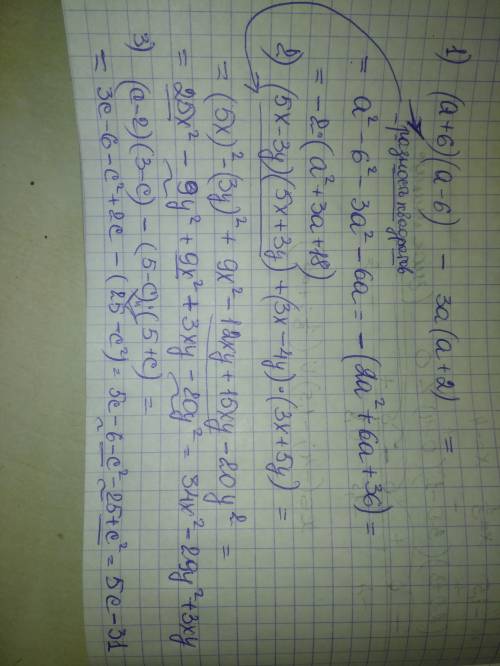 1) (a+6)(a-6) - 3a(a+2) =
разность квадратов
= a² - 6² - 3a² - 6a = -(2a² + 6a + 36) =
= -2·(a² + 3a + 18)
2) (5x-3y)(5x+3y) + (3x-4y)·(3x+5y) =
= (5x)² - (3y)² + 9x² - 12xy + 15xy - 20y² =
= 25x² - 9y² + 9x² + 3xy - 20y² = 34x² - 29y² + 3xy
3) (c-2)(3-c) - (5-c)·(5+c) =
= 3c - 6 - c² + 2c - (25 - c²) = 5c - 6 - c² - 25 + c² = 5c - 31